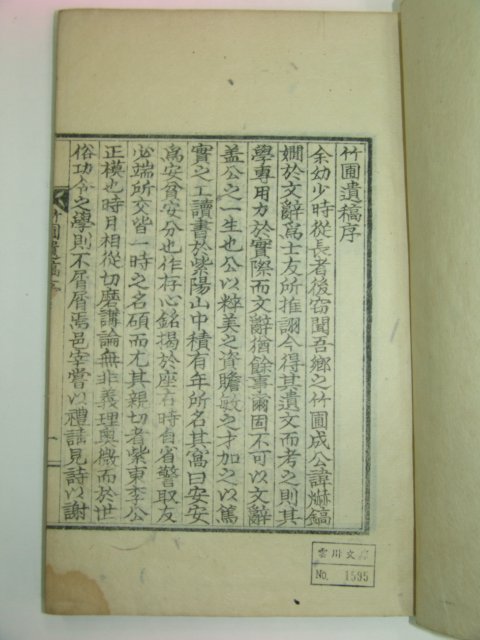 竹圃遺稿序
余幼少時從長者後窃聞吾鄉之竹圃成公諱爀鎬
嫺於文辭爲士友所推詡今得其遺文而考之則其
學專用力於實際而文辭猶餘事爾固不可以文辭
盖公之一生也公以粹美之資贍敏之才加之以篤
實之工讀書於紫陽山中積有年所名其窩曰安安
窩安貧安分也作存心銘揭於座右時自省警取友
必端所交皆一時之名碩而尤其親切者紫東李公
正模也時月相從切磨講論無非義理奧微而於世
俗功令之學則不屑屑焉邑宰嘗以禮請見詩以謝
竹圃遺稿序
一
雲川文庫
No. 1595